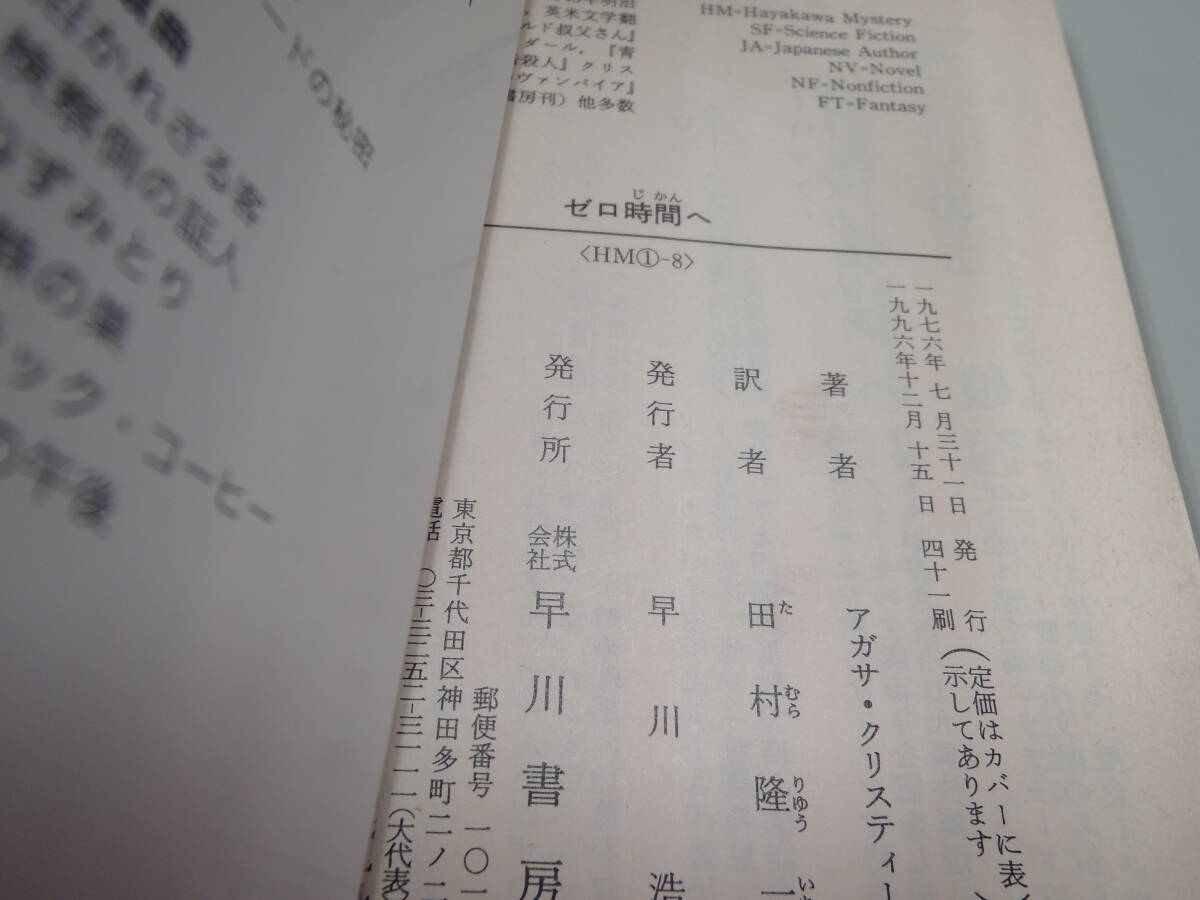 ードの秘密
れざる客
検察側の証人
ずみとり
の巣
ック・コーヒー
の午後
英米文学翻
ルド叔父さん』
ダール，『青
殺人』クリス
ヴァンパイア』
書房刊）他多数
HM=Hayakawa Mystery
SF=Science Fiction
JA=Japanese Author
NV=Novel
NF=Nonfiction
FT=Fantasy
じかん
ゼロ時間へ
〈HM①-8〉
一九七六年 七 月三十一日 発 行
一九九六年十二月 十五 日 四十一刷
（定価はカバーに表
示してあります
著 者 アガサ・クリスティー
訳 者 田村隆一
たむらりゅういち
発行者 早川 浩
発行所 株式会社 早川書房
東京都千代田区神田多町二ノ二
郵便番号 一〇一
電話 〇三-三二五二-三一一一（大代表）